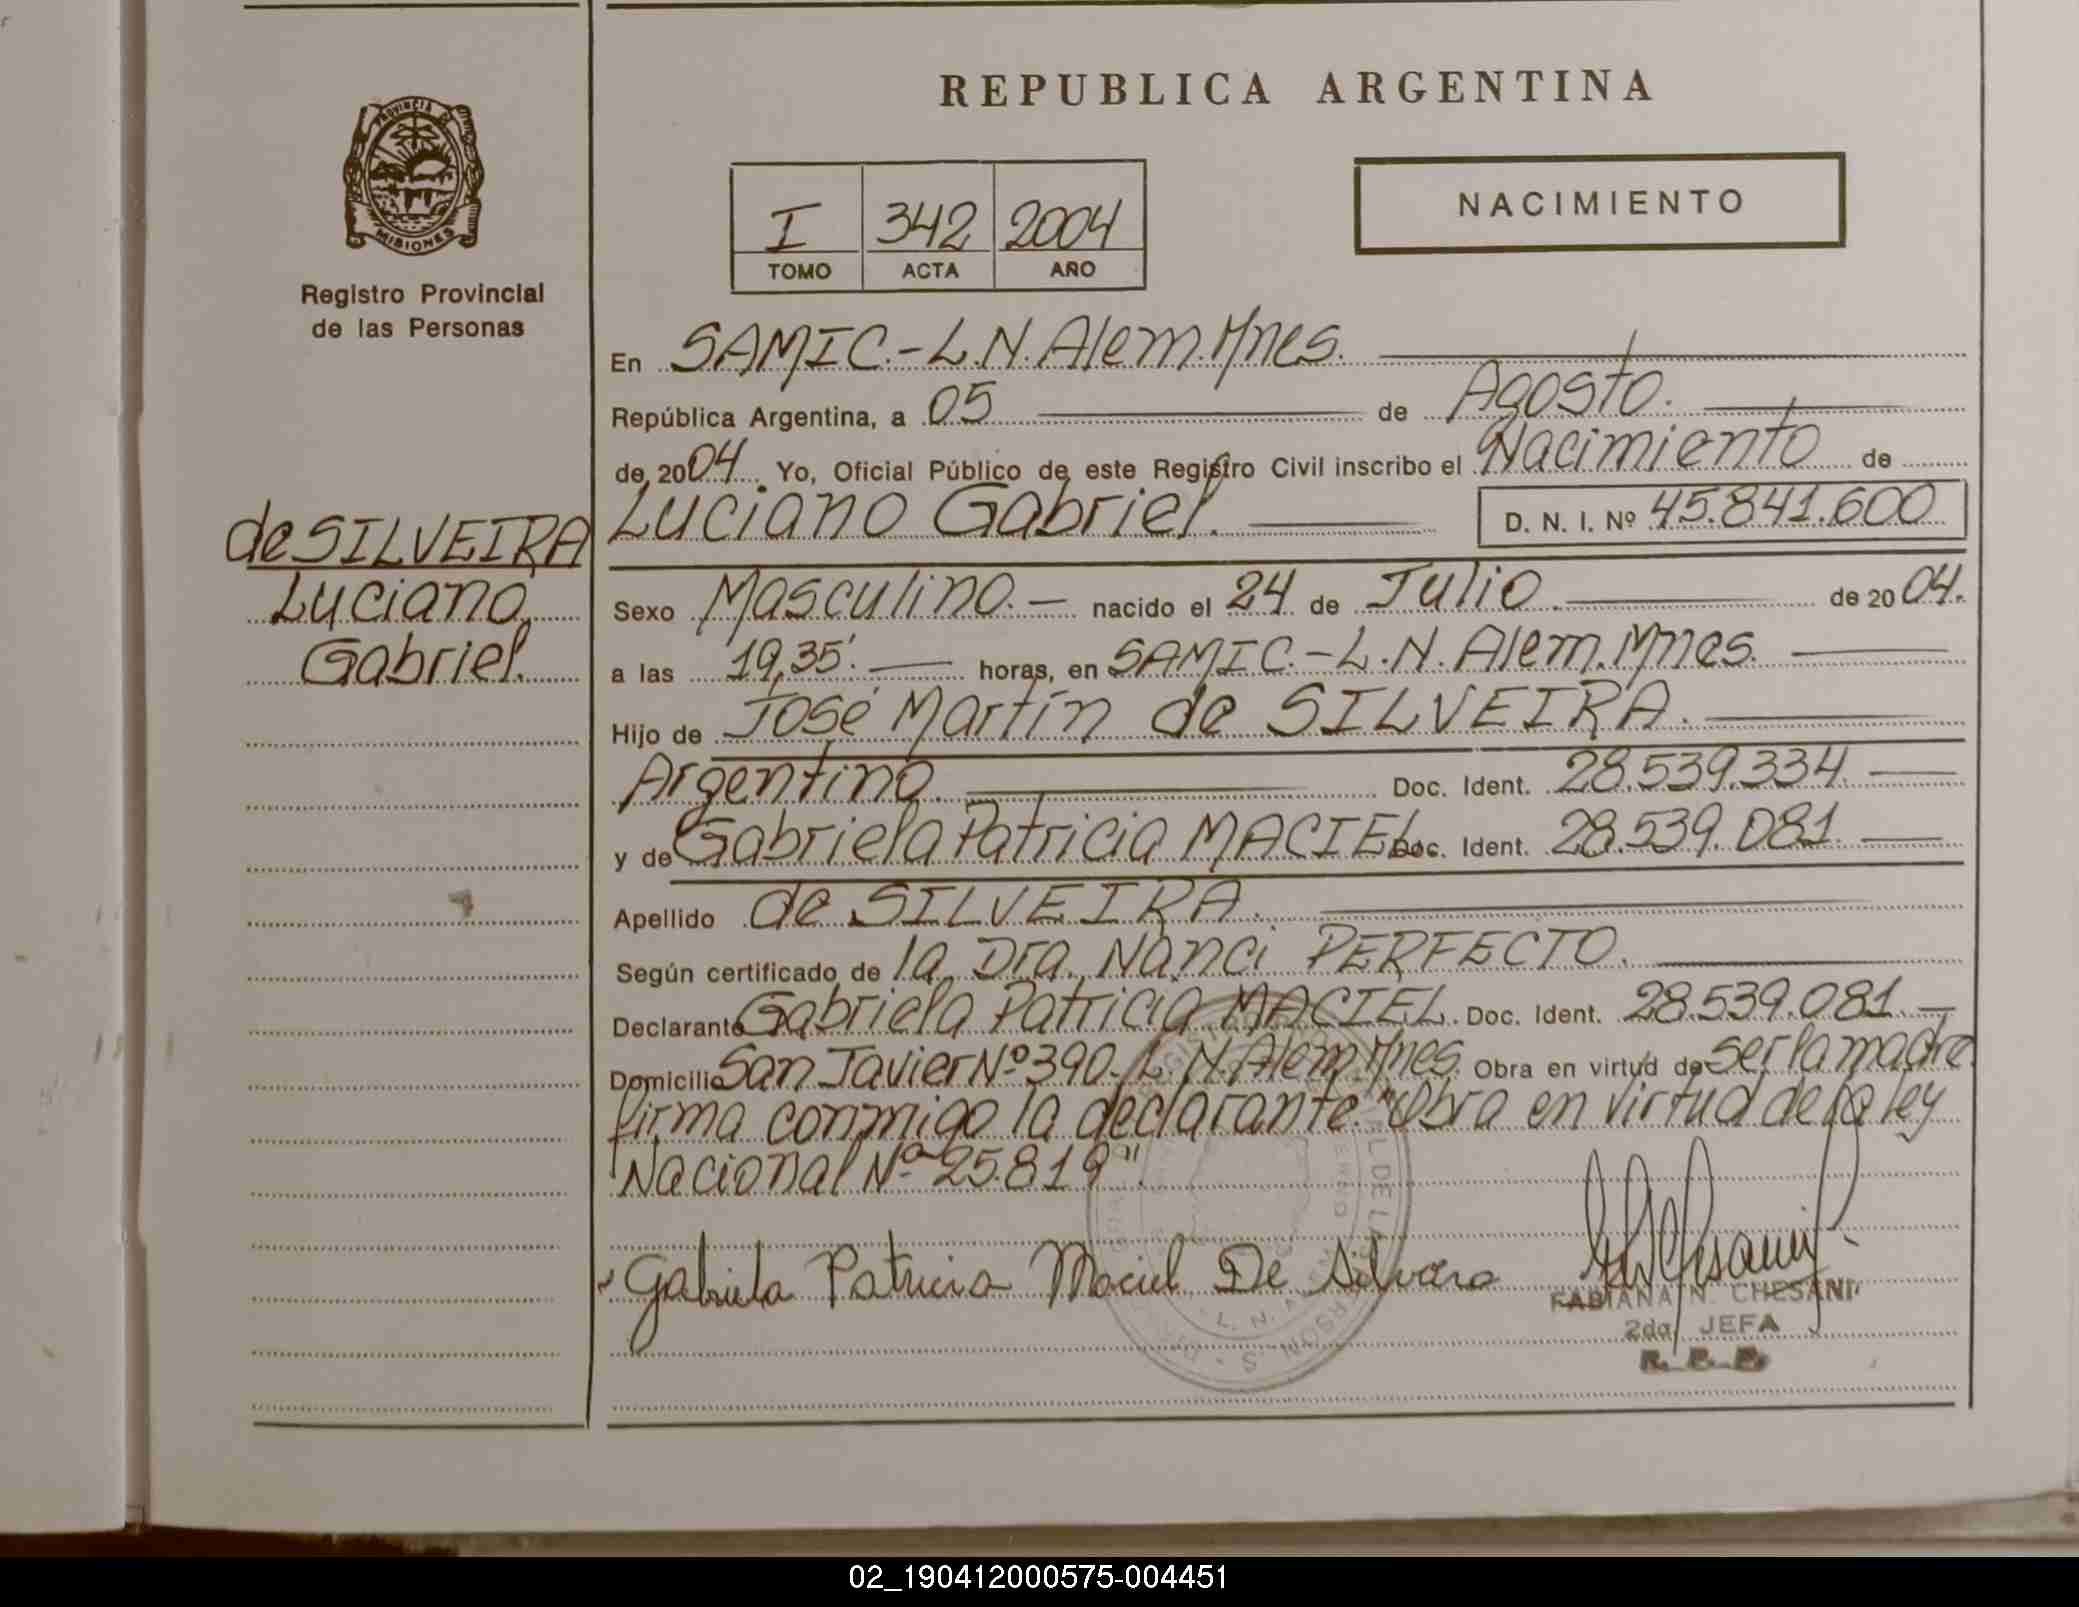 REPUBLICA ARGENTINA
PROVINCIA DE
MISIONES
Registro Provincial
de las Personas
I 342 2004
TOMO ACTA AÑO
NACIMIENTO
En SAMIC.-L.N.Alem.Mnes.
República Argentina, a 05 de Agosto.
de 2004. Yo, Oficial Público de este Registro Civil inscribo el Nacimiento de
Luciano Gabriel. D. N. I. Nº 45.841.600
de SILVEIRA
Luciano
Gabriel.
Sexo Masculino.- nacido el 24 de Julio. de 2004.
a las 19,35'. horas, en SAMIC.-L.N.Alem.Mnes.
Hijo de José Martín de SILVEIRA.
Argentino. Doc. Ident. 28.539.334.
y de Gabriela Patricia MACIEL Doc. Ident. 28.539.081.
Apellido de SILVEIRA.
Según certificado de la Dra. Nanci PERFECTO.
Declarante Gabriela Patricia MACIEL. Doc. Ident. 28.539.081.-
Domicilio San Javier Nº 390. L.N.Alem.Mnes. Obra en virtud de ser la madre
firma conmigo la declarante. "Obra en virtud de la ley
Nacional Nº 25.819".
Gabriela Patricia Maciel De Silvera
FABIANA N. CHESANI
2da. JEFA
02_190412000575-004451